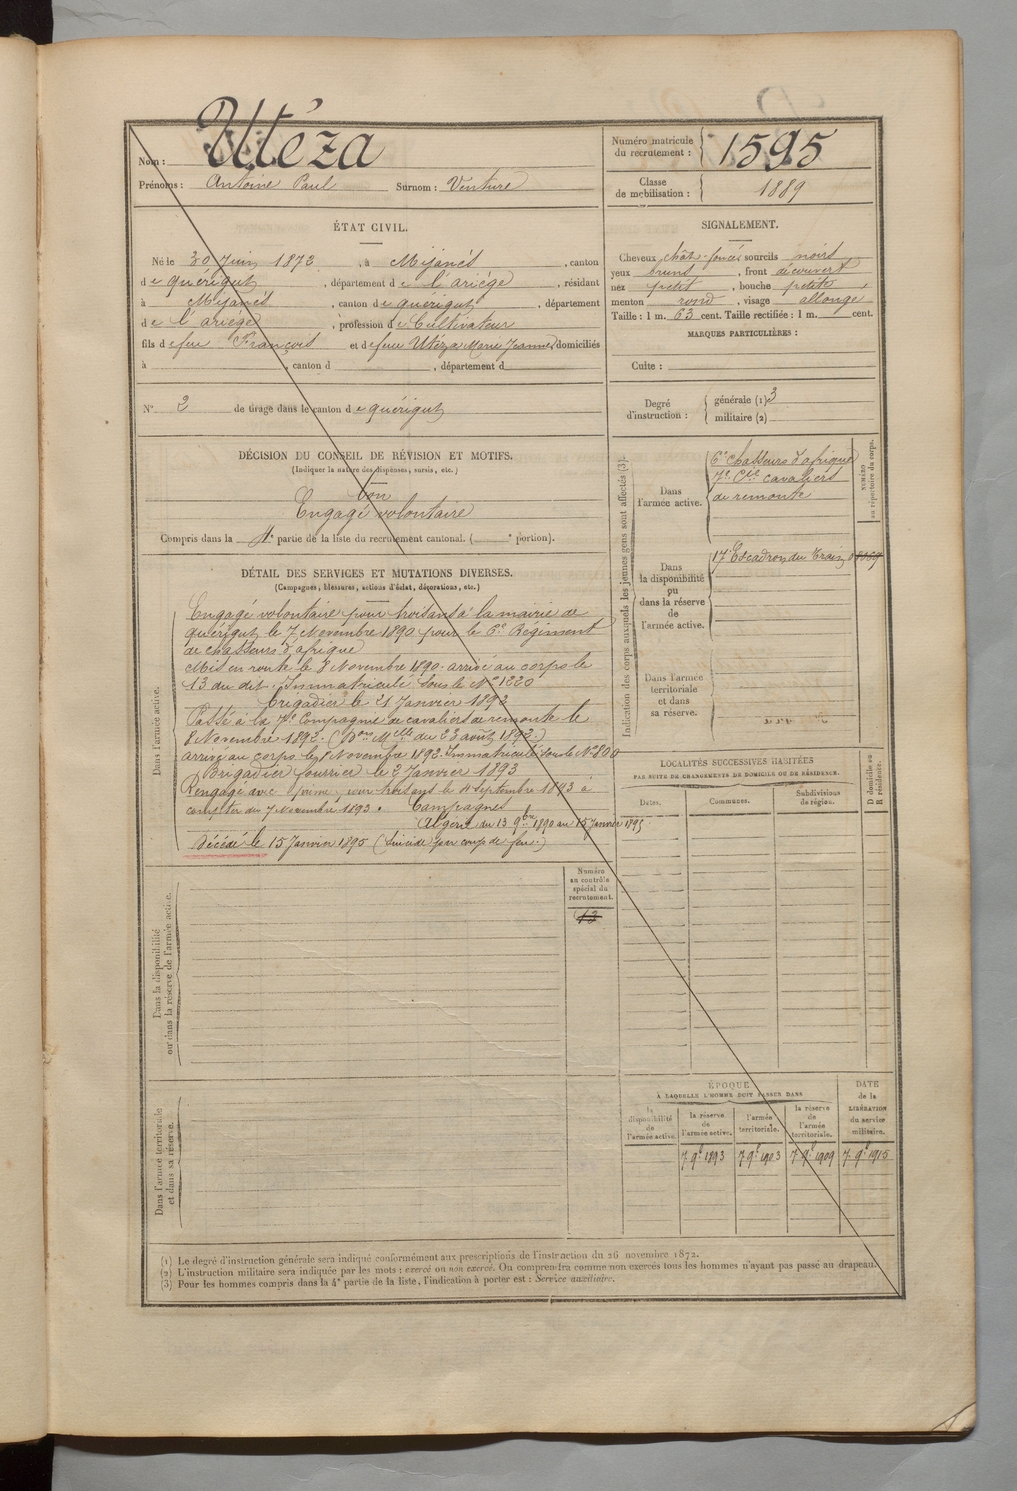 Nom : Utéza
Prénoms : Antoine Paul Surnom : Venture
Numéro matricule du recrutement : 1595
Classe de mobilisation : 1889
ÉTAT CIVIL.
Né le 30 Juin 1872, à Mijanès, canton
de quérigut, département de l'ariège, résidant
à Mijanès, canton de quérigut, département
de l'ariège, profession de Cultivateur
fils de feu François et de feue Utéza Marie Jeanne domiciliés
à , canton d , département d
N° 2 de tirage dans le canton de quérigut
SIGNALEMENT.
Cheveux chât-foncés sourcils noirs
yeux bruns, front découvert
nez petit, bouche petite,
menton rond, visage allongé
Taille : 1 m. 63 cent. Taille rectifiée : 1 m. cent.
MARQUES PARTICULIÈRES :
Culte :
Degré d'instruction : générale (1) 3
militaire (2)
DÉCISION DU CONSEIL DE RÉVISION ET MOTIFS.
(Indiquer la nature des dispenses, sursis, etc.)
bon
Engagé volontaire
Compris dans la 1e partie de la liste du recrutement cantonal. ( e portion).
DÉTAIL DES SERVICES ET MUTATIONS DIVERSES.
(Campagnes, blessures, actions d'éclat, décorations, etc.)
Dans l'armée active.
Engagé volontaire pour trois ans à la mairie de
quérigut le 7 Novembre 1890 pour le 6e Régiment
de chasseurs d'afrique
Mis en route le 8 Novembre 1890. arrivé au corps le
13 du dit. Immatriculé sous le N° 1220
Brigadier le 21 Janvier 1892
Passé à la 7e Compagnie de cavaliers de remonte le
8 Novembre 1892. (Don Melle du 23 août 1892.)
arrivé au corps le 8 Novembre 1892. Immatriculé sous le N° 800
Brigadier fourrier le 2 Janvier 1893
Rengagé avec prime pour trois ans le 4 Septembre 1893 à
compter du 7 Novembre 1893. Campagnes
Algérie du 13 9bre 1890 au 15 Janvier 1895
Décédé le 15 Janvier 1895 (Suicide par coup de feu.)
Indication des corps auxquels les jeunes gens sont affectés (3).
Dans l'armée active.
6e chasseurs d'afrique
7e Cie cavaliers
de remonte
NUMÉRO au répertoire du corps.
Dans la disponibilité ou dans la réserve de l'armée active.
17e Escadron du Train
Dans l'armée territoriale et dans sa réserve.
LOCALITÉS SUCCESSIVES HABITÉES
PAR SUITE DE CHANGEMENTS DE DOMICILE OU DE RÉSIDENCE.
Dates. Communes. Subdivisions de région. D domicile ou R résidence.
Dans la disponibilité ou dans la réserve de l'armée active.
Numéro au contrôle spécial du recrutement.
Dans l'armée territoriale et dans sa réserve.
ÉPOQUE
À LAQUELLE L'HOMME DOIT PASSER DANS
la disponibilité de l'armée active. la réserve de l'armée active. l'armée territoriale. la réserve de l'armée territoriale.
DATE de la LIBÉRATION du service militaire.
7 9e 1893 7 9e 1903 7 9e 1909 7 9e 1915
(1) Le degré d'instruction générale sera indiqué conformément aux prescriptions de l'instruction du 26 novembre 1872.
(2) L'instruction militaire sera indiquée par les mots : exercé ou non exercé. On comprendra comme non exercés tous les hommes n'ayant pas passé au drapeau.
(3) Pour les hommes compris dans la 4e partie de la liste, l'indication à porter est : Service auxiliaire.